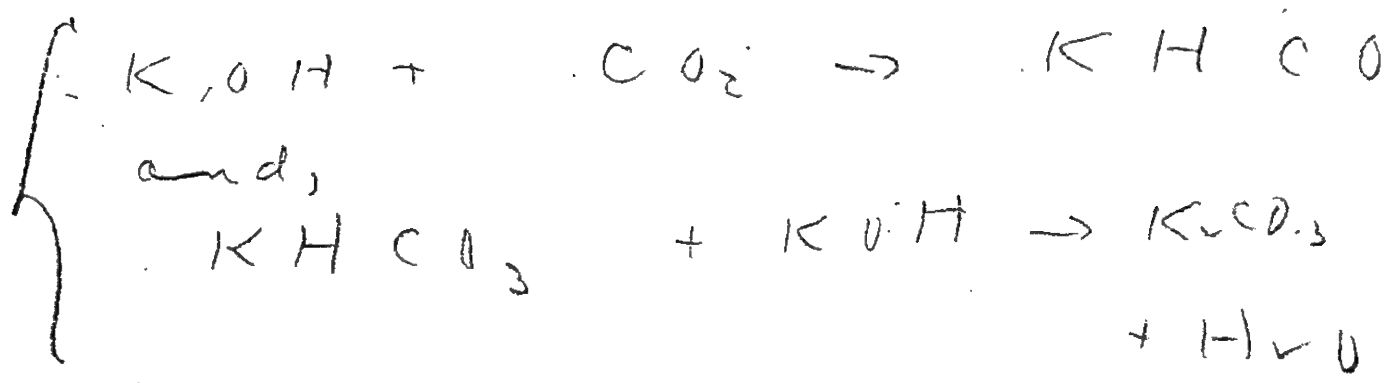 KOH + CO₂ → KHCO
and,
KHCO₃ + KOH → K₂CO₃
+ H₂O